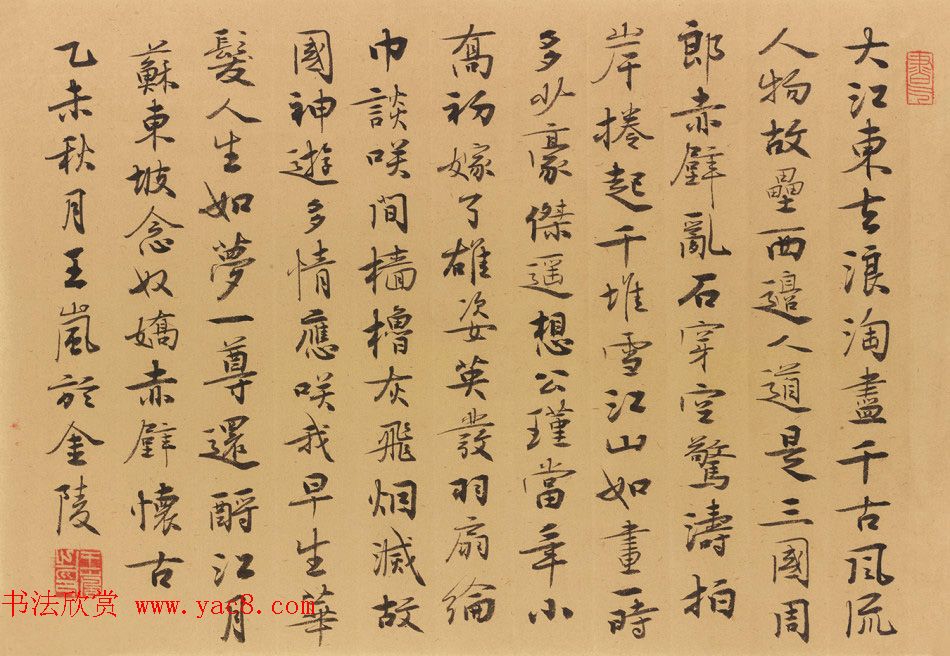 大江東去浪淘盡千古風流
人物故壘西邊人道是三國周
郎赤壁亂石穿空驚濤拍
岸捲起千堆雪江山如畫一時
多少豪傑遥想公瑾當年小
喬初嫁了雄姿英發羽扇綸
巾談咲間檣櫓灰飛烟滅故
國神遊多情應咲我早生華
髮人生如夢一尊還酹江月
蘇東坡念奴嬌赤壁懷古
乙未秋月王嵐於金陵
书法欣赏 www.yac8.com